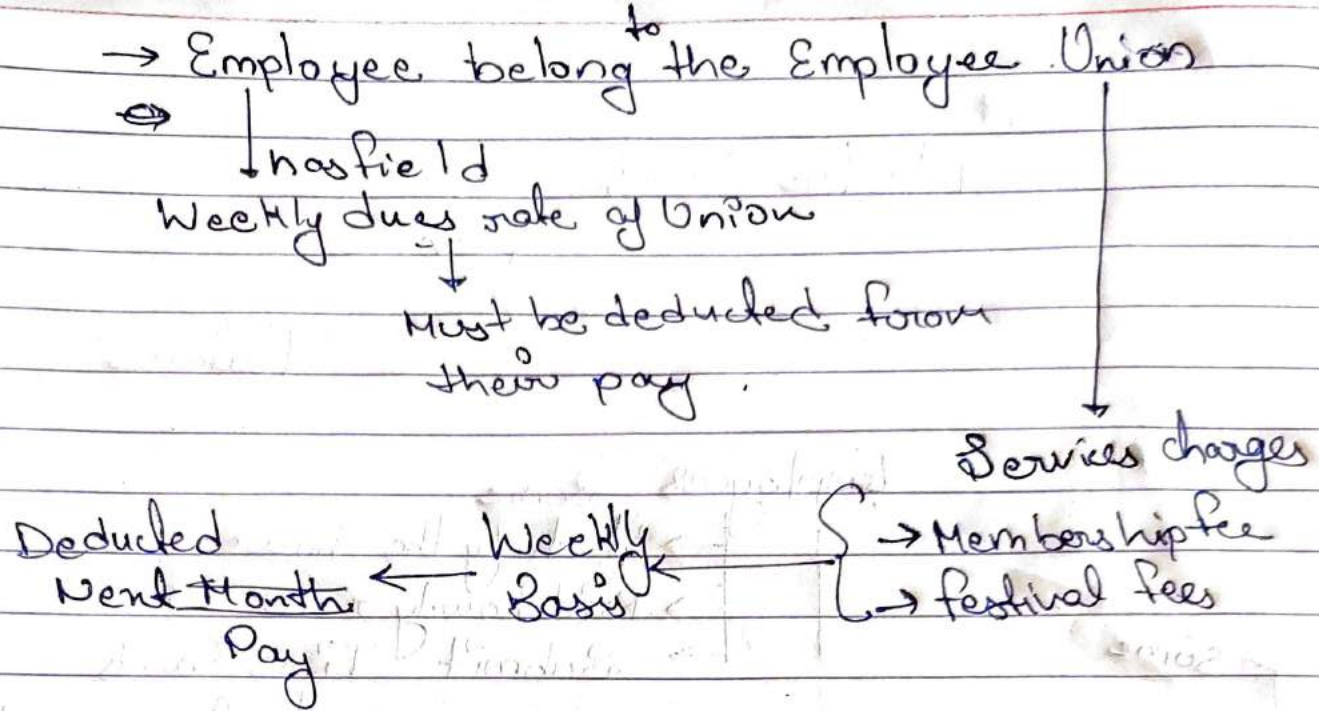 → Employee belong to the Employee Union
↓ has field
Weekly dues rate of Union
↓
Must be deducted from
their pay.
Services charges
→ Membership fee
→ festival fees
Weekly
Basis
Deducted
Next Month
Pay